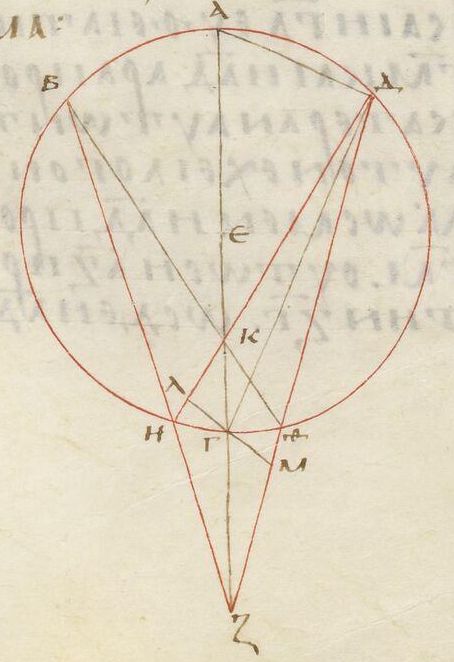 ΜΑ:
Α
Β
Δ
Є
Κ
Λ
Η
Γ
Θ
Μ
Ζ